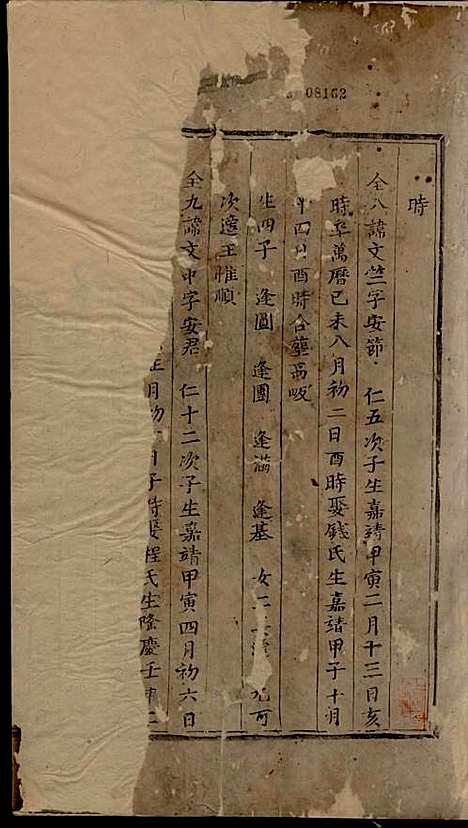 08162
時
仝八諱文竺字安節　仁五次子生嘉靖甲寅二月十三日亥
時卒萬曆己未八月初二日酉時娶錢氏生嘉靖甲子十月
四　酉時合葬
生四子　逢圖　逢團　逢滿　逢基　女二　可
次適王惟順
仝九諱文中字安君　仁十二次子生嘉靖甲寅四月初六日
月初　子時娶程氏生隆慶壬